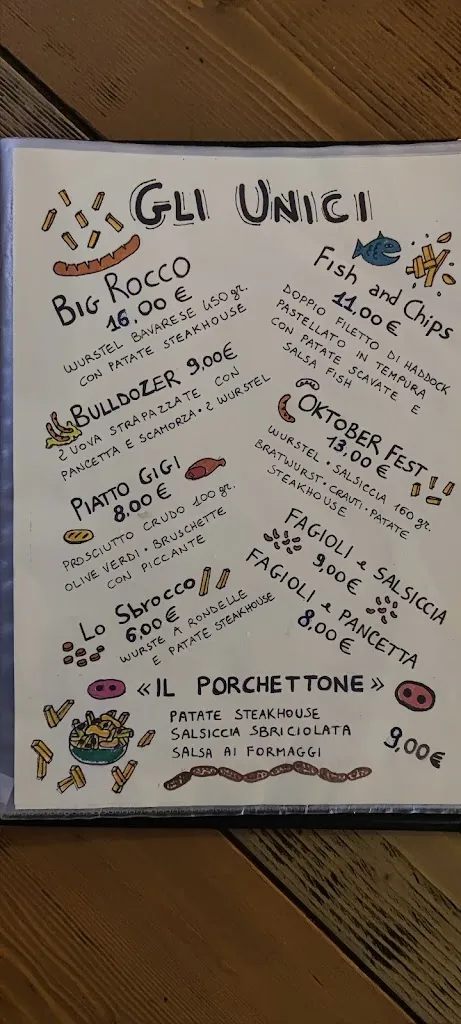 GLI UNICI
BIG ROCCO
16,00 €
WURSTEL BAVARESE 450 gr.
CON PATATE STEAKHOUSE
BULLDOZER 9,00€
2 UOVA STRAPAZZATE CON
PANCETTA E SCAMORZA • 2 WURSTEL
PIATTO GIGI
8,00 €
PROSCIUTTO CRUDO 100 gr.
OLIVE VERDI • BRUSCHETTE
CON PICCANTE
Lo Sbrocco
6,00 €
WURSTE A RONDELLE
E PATATE STEAKHOUSE
Fish and Chips
11,00 €
DOPPIO FILETTO DI HADDOCK
PASTELLATO IN TEMPURA
CON PATATE SCAVATE E
SALSA FISH
OKTOBER FEST
13,00 €
WURSTEL • SALSICCIA 160 gr.
BRATWURST • CRAUTI • PATATE
STEAKHOUSE
FAGIOLI e SALSICCIA
9,00 €
FAGIOLI e PANCETTA
8,00 €
«IL PORCHETTONE»
PATATE STEAKHOUSE
SALSICCIA SBRICIOLATA
SALSA AI FORMAGGI
9,00€